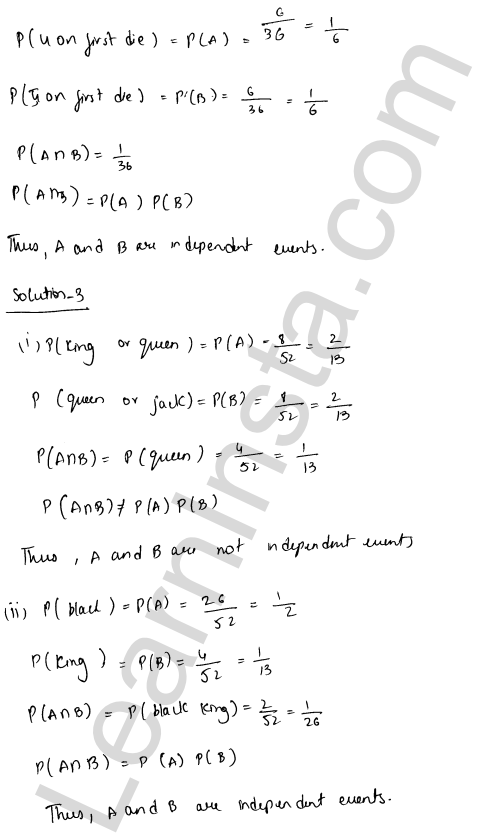 P(4 on first die) = P(A) = 6/36 = 1/6
P(5 on first die) = P(B) = 6/36 = 1/6
P(A∩B) = 1/36
P(A∩B) = P(A) P(B)
Thus, A and B are independent events.
Solution-3
(i) P(King or queen) = P(A) - 8/52 = 2/13
P (queen or jack) = P(B) = 8/52 = 2/13
P(A∩B) = P(queen) = 4/52 = 1/13
P(A∩B) ≠ P(A) P(B)
Thus, A and B are not independent events
(ii) P(black) = P(A) = 26/52 = 1/2
P(King) = P(B) = 4/52 = 1/13
P(A∩B) = P(black king) = 2/52 = 1/26
P(A∩B) = P(A) P(B)
Thus, A and B are independent events.
Learninsta.com